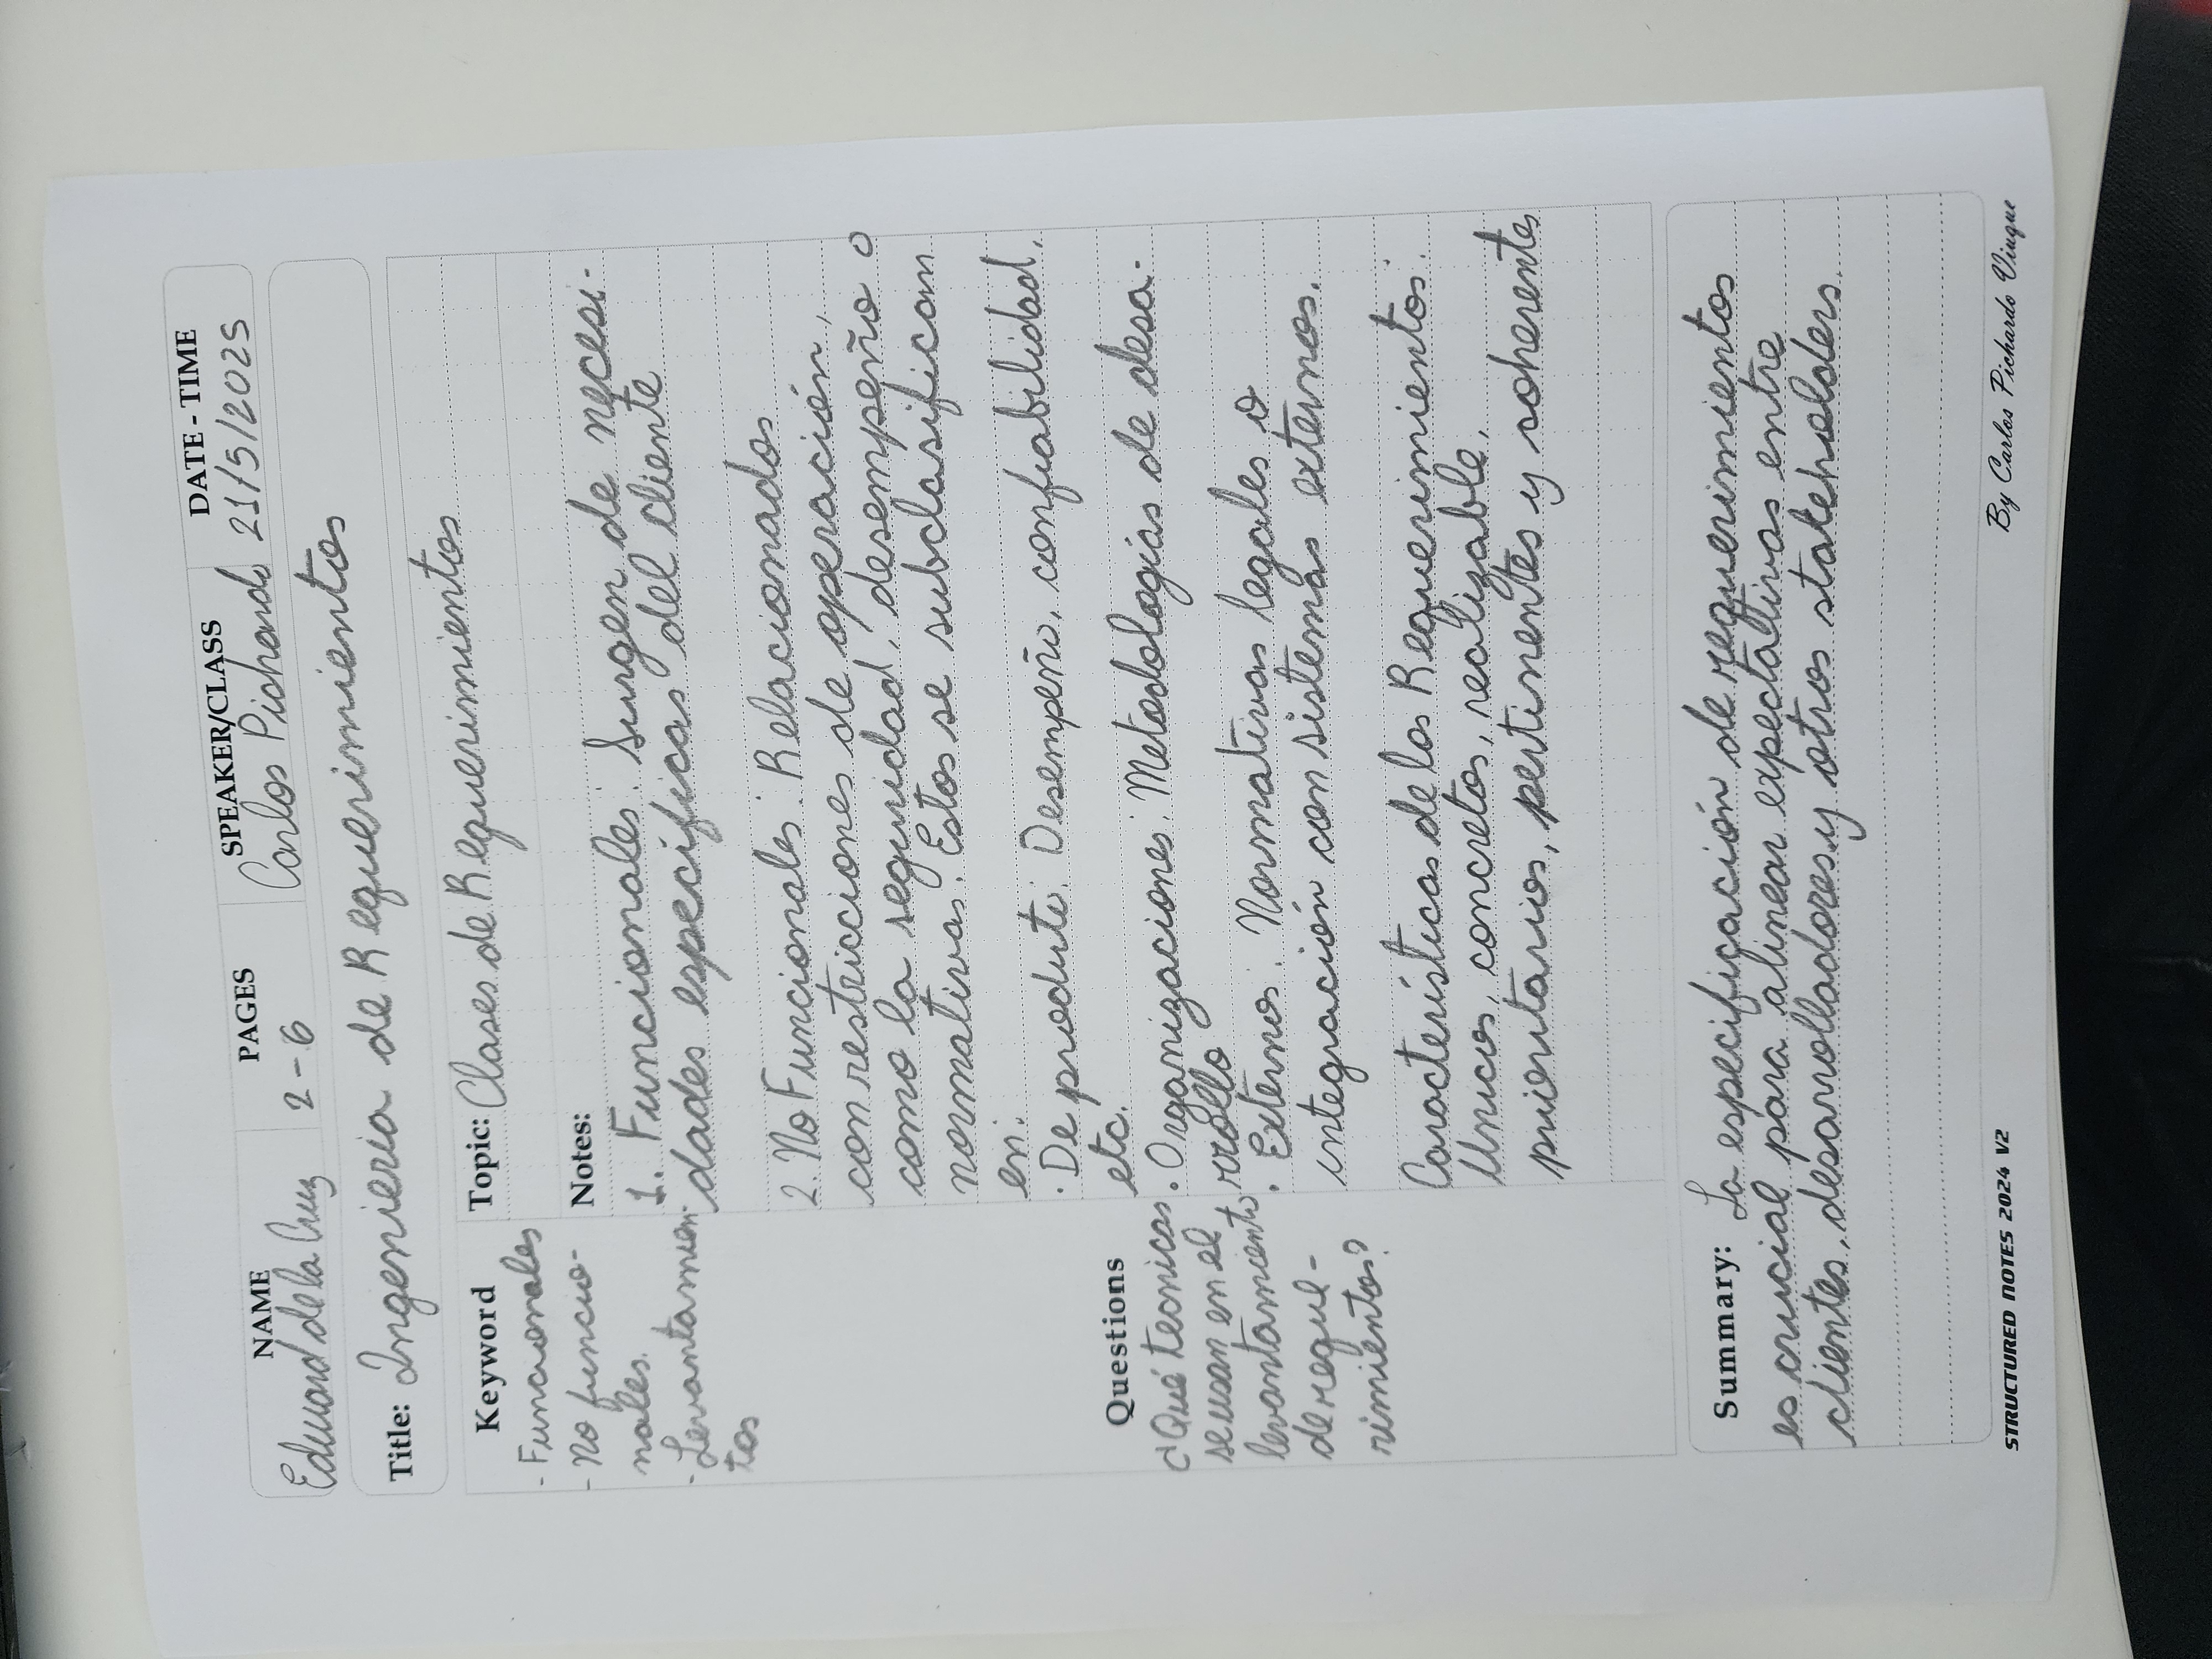 NAME PAGES SPEAKER/CLASS DATE - TIME
Eduard de la Cruz 2-6 Carlos Pichardo 21/5/2025
Title: Ingenieria de Requerimientos
Keyword
- Funcionales
- No funcio-
nales.
- Levantamien-
tos
Topic: Clases de Requerimientos
Notes:
1. Funcionales: Surgen de necesi-
dades específicas del cliente
2. No Funcionales: Relacionados
con restricciones de operación,
como la seguridad, desempeño o
normativas. Estos se subclasifican
en:
· De producto: Desempeño, confiabilidad,
etc.
· Organizaciones: Metodologías de desa-
rrollo
· Externos: Normativas legales o
integración con sistemas externos.
Características de los Requerimientos:
Unicos, concretos, realizable,
prioritarios, pertinentes y coherentes
Questions
¿Qué tecnicas
se usan en el
levantamiento
de reque-
rimientos?
Summary: La especificación de requerimientos
es crucial para alinear expectativas entre
clientes, desarrolladores y otros stakeholders.
STRUCTURED NOTES 2024 V2 By Carlos Pichardo Viuque